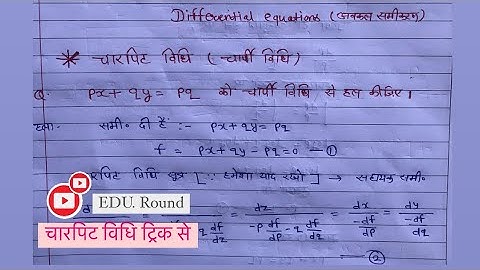 Differential equations (अवकल समीकरण)
* चारपिट विधि ( चार्पी विधि )
Q. px + qy = pq को चार्पी विधि से हल कीजिए।
हल:- समी० दी है :- px + qy = pq
f = px + qy - pq = 0 — ①
चारपिट विधि सूत्र [ ∵ हमेशा याद रखो ] → सहायक समी०
= dz / -p df/dp - q df/dq = dx / -df/dp = dy / -df/dq — ②
q df/dz
EDU. Round
चारपिट विधि ट्रिक से